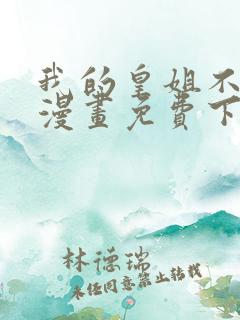 我的皇姐不
漫畫免費下
林德瑞
未經同意禁止轉載